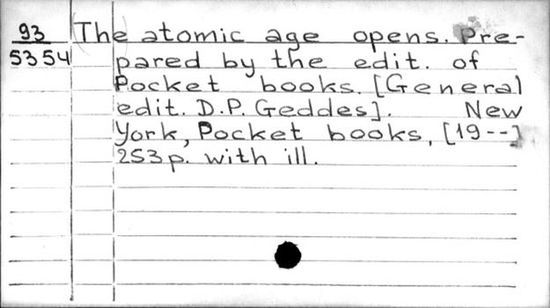 93
5354
The atomic age opens. Pre-
pared by the edit. of
Pocket books. [General
edit. D.P. Geddes]. New
York, Pocket books, [19--]
253p. with ill.